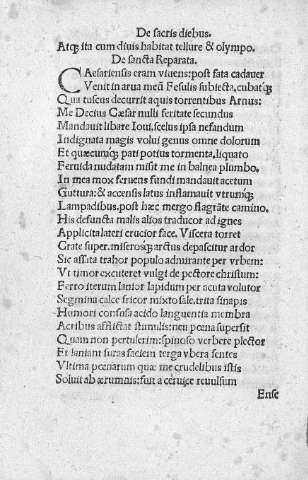 De sacris diebus.
Atq; ita cum diuis habitat tellure & olympo.
De sancta Reparata.
CAesariensis eram viuens: post fata cadauer
Venit in arua meū Fesulis subiecta, cubatq;
Qua tuscus decurrit aquis torrentibus Arnus:
Me Decius Cæsar nulli feritate secundus
Mandauit libare Ioui, scelus ipsa nefandum
Indignata magis volui genus omne dolorum
Et quæcunq; pati potius tormenta, liquato
Feruida nudatam misit me in balnea plumbo.
In mea mox feruens fundi mandauit acetum
Guttura: & accensis latus inflamauit vtrunq;
Lampadibus. post hæc mergo flagrāte camino.
His defuncta malis alios traducor ad ignes
Applicita lateri crucior face. Viscera torret
Grate super. miserosq; artus depascitur ardor
Sic assata trahor populo admirante per vrbem:
Vt timor excuteret vulgi de pectore christum:
Ferro iterum lanior lapidum per acuta volutor
Segmina calce fricor mixto sale. trita sinapis
Humori confusa acido languentia membra
Acribus afflictat stimulis: neu pœna supersit
Quam non pertulerim: spinoso verbere plector
Et laniant suras faciem terga vbera sentes
Vltima pœnarum quæ me crudelibus istis
Soluit ab ærumnis: fuit a ceruice reuulsum
Ense